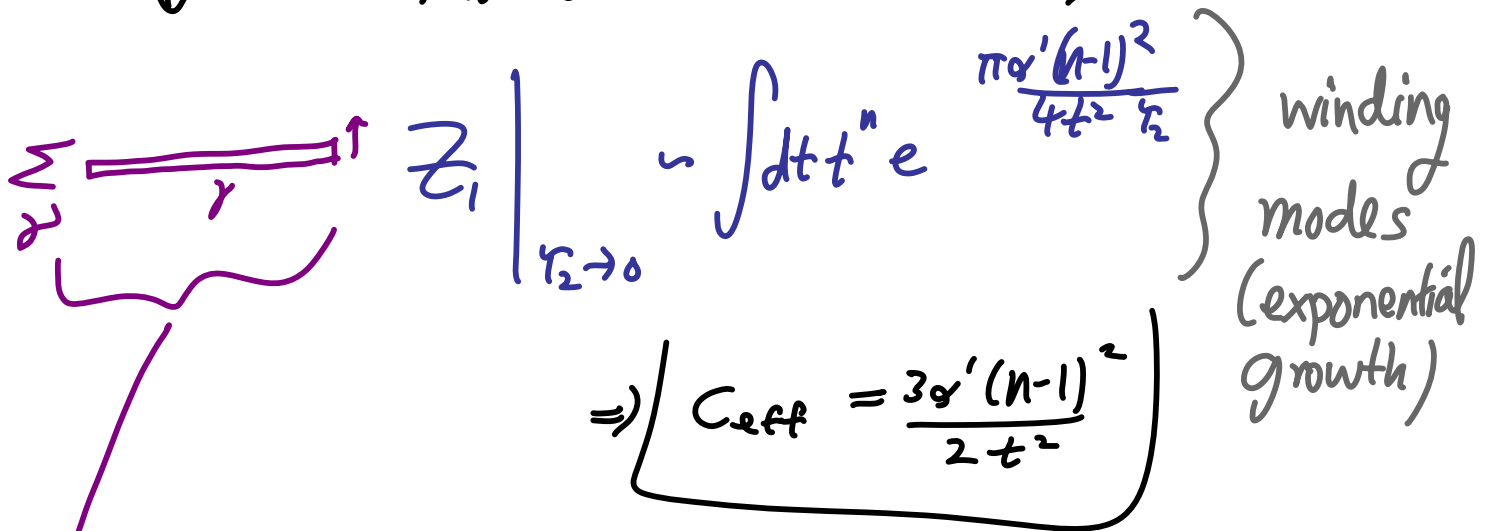 Σ_γ γ Z_1 |_{τ_2→0} ~ ∫ dt t^n e^{πα'(n-1)^2 / 4t^2 τ_2}
winding
modes
(exponential
growth)
⇒ C_eff = 3α'(n-1)^2 / 2t^2